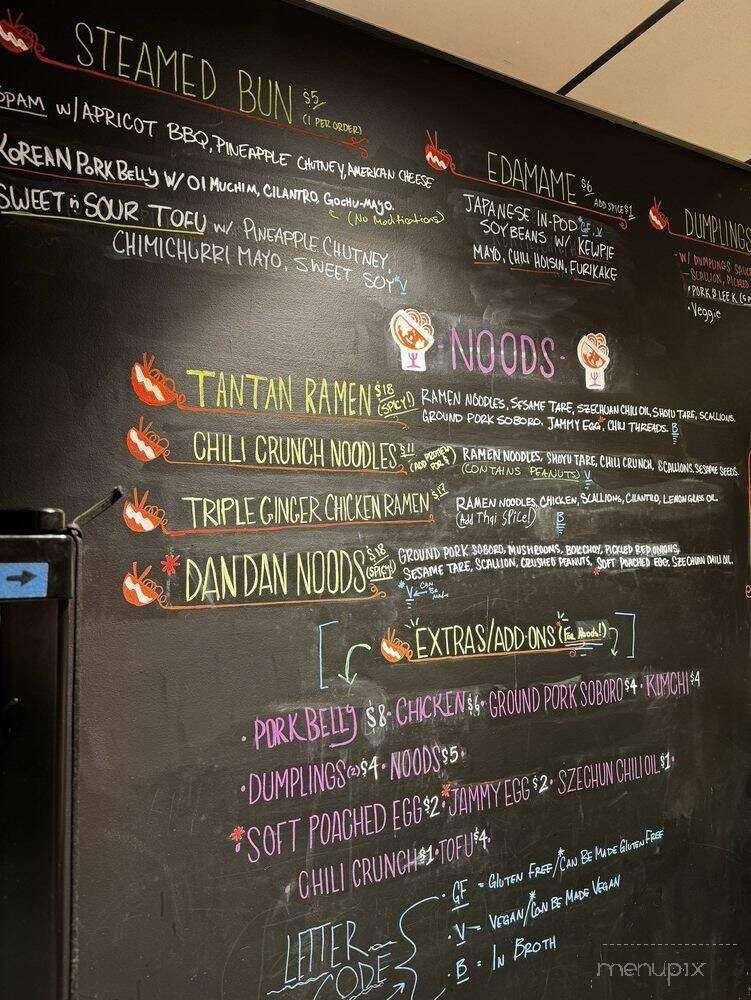 STEAMED BUN $5
(1 PER ORDER)
SPAM W/APRICOT BBQ, PINEAPPLE CHUTNEY, AMERICAN CHEESE
KOREAN PORK BELLY W/ OI MUCHIM, CILANTRO, GOCHU-MAYO.
(No Modifications)
SWEET n' SOUR TOFU W/ PINEAPPLE CHUTNEY,
CHIMICHURRI MAYO, SWEET SOY *V
EDAMAME $6 ADD SPICE $1
JAPANESE IN-POD *GF, V
SOYBEANS W/ KEWPIE
MAYO, CHILI HOISIN, FURIKAKE
DUMPLINGS
W/ DUMPLINGS
SCALLION, PICKLED
• PORK & LEEK
• Veggie
• NOODS •
TANTAN RAMEN $18 (SPICY!)
RAMEN NOODLES, SESAME TARE, SZECHUAN CHILI OIL, SHOYU TARE, SCALLIONS.
GROUND PORK SOBORO. JAMMY EGG*, CHILI THREADS. B
CHILI CRUNCH NOODLES $11 (ADD PROTEIN FOR $)
RAMEN NOODLES, SHOYU TARE, CHILI CRUNCH, SCALLIONS, SESAME SEEDS.
(CONTAINS PEANUTS) V
TRIPLE GINGER CHICKEN RAMEN $17
RAMEN NOODLES, CHICKEN, SCALLIONS, CILANTRO, LEMON GRASS OIL.
(Add Thai Spice!) B
*DAN DAN NOODS $18 (SPICY!)
GROUND PORK SOBORO, MUSHROOMS, BOKCHOY, PICKLED RED ONIONS,
SESAME TARE, SCALLION, CRUSHED PEANUTS, *SOFT POACHED EGG, SZECHUAN CHILI OIL.
*V CAN BE
EXTRAS/ADD-ONS (For Noods!)
• PORK BELLY $8 • CHICKEN $6 • GROUND PORK SOBORO $4 • KIMCHI $4
• DUMPLINGS (2) $4 • NOODS $5 •
*SOFT POACHED EGG $2 • *JAMMY EGG $2 • SZECHUN CHILI OIL $1 •
• CHILI CRUNCH $1 • TOFU $4 •
LETTER
CODE
• GF = GLUTEN FREE/*CAN BE MADE GLUTEN FREE
• V = VEGAN/*CAN BE MADE VEGAN
• B = IN BROTH
menupix